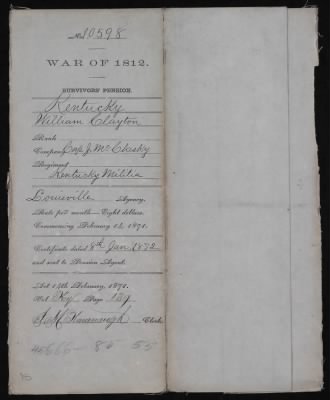 No. 10598
WAR OF 1812.
SURVIVORS' PENSION.
Kentucky
William Clayton
Rank
Company Cap. J. McClasky
Regiment
Kentucky Militia
Louisville Agency.
Rate per month—Eight dollars.
Commencing February 14, 1871.
Certificate dated 8th Jan. 1872
and sent to Pension Agent.
Act 14th February, 1871.
Vol. Ky Page 129
Kavanaugh Clerk